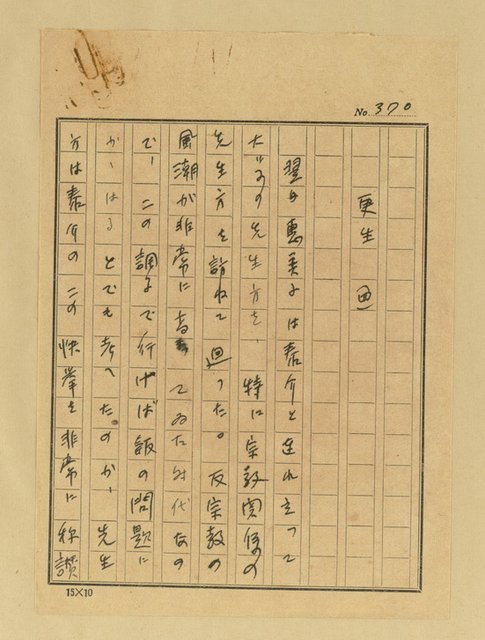 No. 370
更生 四
翌日恵美子は泰介と連れ立つて
大学の先生方を、特に宗教関係の
先生方を訪ねて廻つた。反宗教の
風潮が非常に高 てゐた時代なの
で、この調子で行けば飯の問題に
かゝはるとでも考へたのか、先生
方は泰介のこの快挙を非常に称讃
15×10